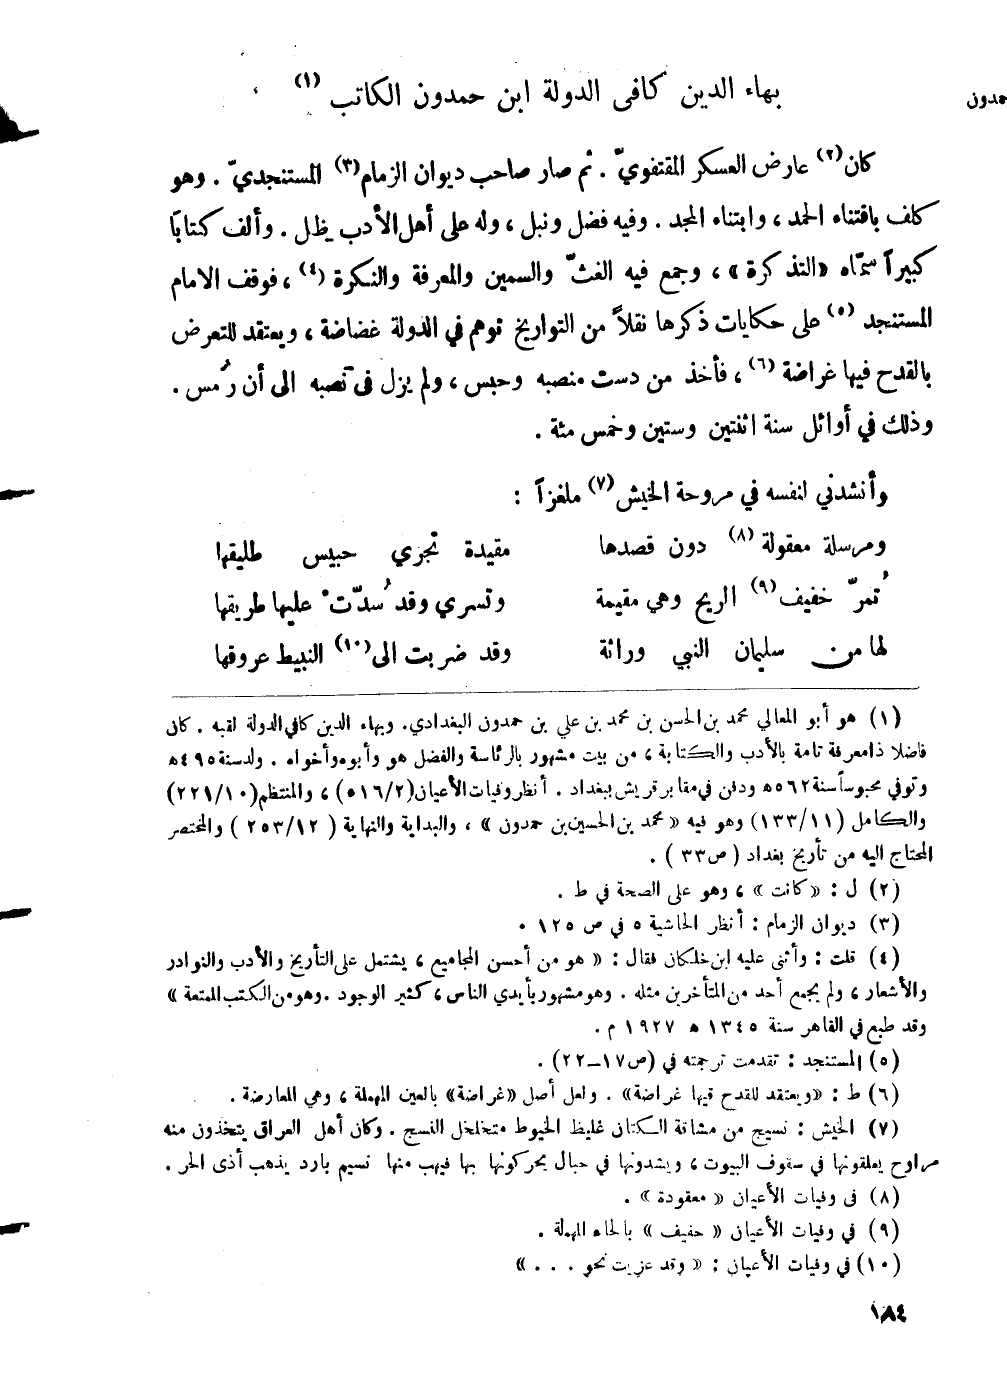 بهاء الدين كافى الدولة ابن حمدون الكاتب (١)
حمدون
كان (٢) عارض العسكر المقتفويّ . ثم صار صاحب ديوان الزمام (٣) المستنجديّ . وهو
كلف باقتناء الحمد ، وابتناء المجد . وفيه فضل ونبل ، وله على أهل الأدب يظل . وألف كتاباً
كبيراً سمّاه «التذكرة» ، وجمع فيه الغثّ والسمين والمعرفة والنكرة (٤) ، فوقف الامام
المستنجد (٥) على حكايات ذكرها نقلاً من التواريخ توهم في الدولة غضاضة ، ويعتقد للتعرض
بالقدح فيها غراضة (٦) ، فأخذ من دست منصبه وحبس ، ولم يزل فى نصبه الى أن رُمس .
وذلك في أوائل سنة اثنتين وستين وخمس مئة .
وأنشدني لنفسه في مروحة الخيش (٧) ملغزاً :
ومرسلة معقولة (٨) دون قصدها مقيدة تجري حبيس طليقها
تُمرّ خفيف (٩) الريح وهي مقيمة وتسري وقد سُدّتْ عليها طريقها
لها من سليمان النبي وراثة وقد ضربت الى (١٠) النبيط عروقها
(١) هو أبو المعالي محمد بن الحسن بن محمد بن علي بن حمدون البغدادي. وبهاء الدين كافي الدولة لقبه . كان
فاضلا ذا معرفة تامة بالأدب والكتابة ، من بيت مشهور بالرئاسة والفضل هو وأبوه وأخواه . ولد سنة ٤٩٥ ه
وتوفي محبوساً سنة ٥٦٢ ه ودفن في مقابر قريش ببغداد . أنظر وفيات الأعيان (٥١٦/٢) ، والمنتظم (٢٢١/١٠)
والكامل (١٣٣/١١) وهو فيه « محمد بن الحسين بن حمدون » ، والبداية والنهاية (٢٥٣/١٢) والمختصر
المحتاج اليه من تأريخ بغداد ( ص ٣٣ ) .
(٢) ل : « كانت » ، وهو على الصحة في ط .
(٣) ديوان الزمام : أنظر الحاشية ٥ في ص ١٢٥ .
(٤) قلت : وأثنى عليه ابن خلكان فقال : « هو من أحسن المجاميع ، يشتمل على التأريخ والأدب والنوادر
والأشعار ، ولم يجمع أحد من المتأخرين مثله . وهو مشهور بأيدي الناس ، كثير الوجود . وهو من الكتب الممتعة »
وقد طبع في القاهر سنة ١٣٤٥ ه ١٩٢٧ م .
(٥) المستنجد : تقدمت ترجمته في (ص ١٧ــ٢٢) .
(٦) ط : «ويعتقد للقدح فيها غراضة» . ولعل أصل «غراضة» بالعين المهملة ، وهي المعارضة .
(٧) الخيش : نسيج من مشاقة الكتان غليظ الخيوط متخلخل النسج . وكان أهل العراق يتخذون منه
مراوح يعلقونها في سقوف البيوت ، ويشدونها في حبال يحركونها بها فيهب منها نسيم بارد يذهب أذى الحر .
(٨) فى وفيات الأعيان « معقودة » .
(٩) في وفيات الأعيان « حفيف » بالحاء المهملة .
(١٠) في وفيات الأعيان : « وقد عزيت نحو . . . »
١٨٤